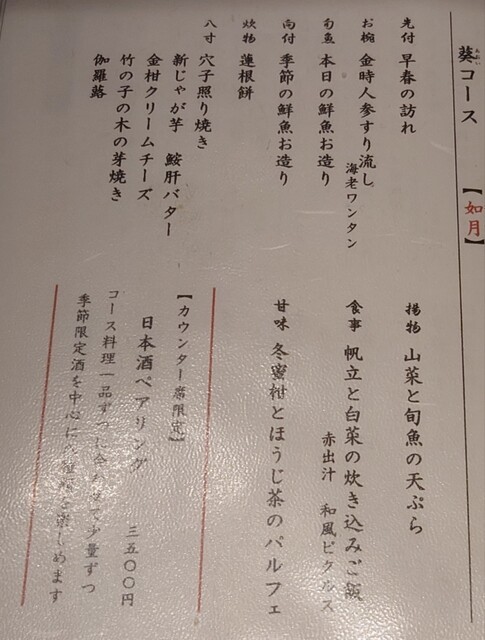 葵コース
あおい
【如月】
先付 早春の訪れ
お椀 金時人参すり流し
海老ワンタン
旬魚 本日の鮮魚お造り
向付 季節の鮮魚お造り
炊物 蓮根餅
八寸 穴子照り焼き
新じゃが芋 鮟肝バター
金柑クリームチーズ
竹の子の木の芽焼き
伽羅蕗
揚物 山菜と旬魚の天ぷら
食事 帆立と白菜の炊き込みご飯
赤出汁 和風ピクルス
甘味 冬蜜柑とほうじ茶のパルフェ
【カウンター席限定】
日本酒ペアリング 三五〇〇円
コース料理一品ずつに合わせて少量ずつ
季節限定酒を中心に を楽しめます